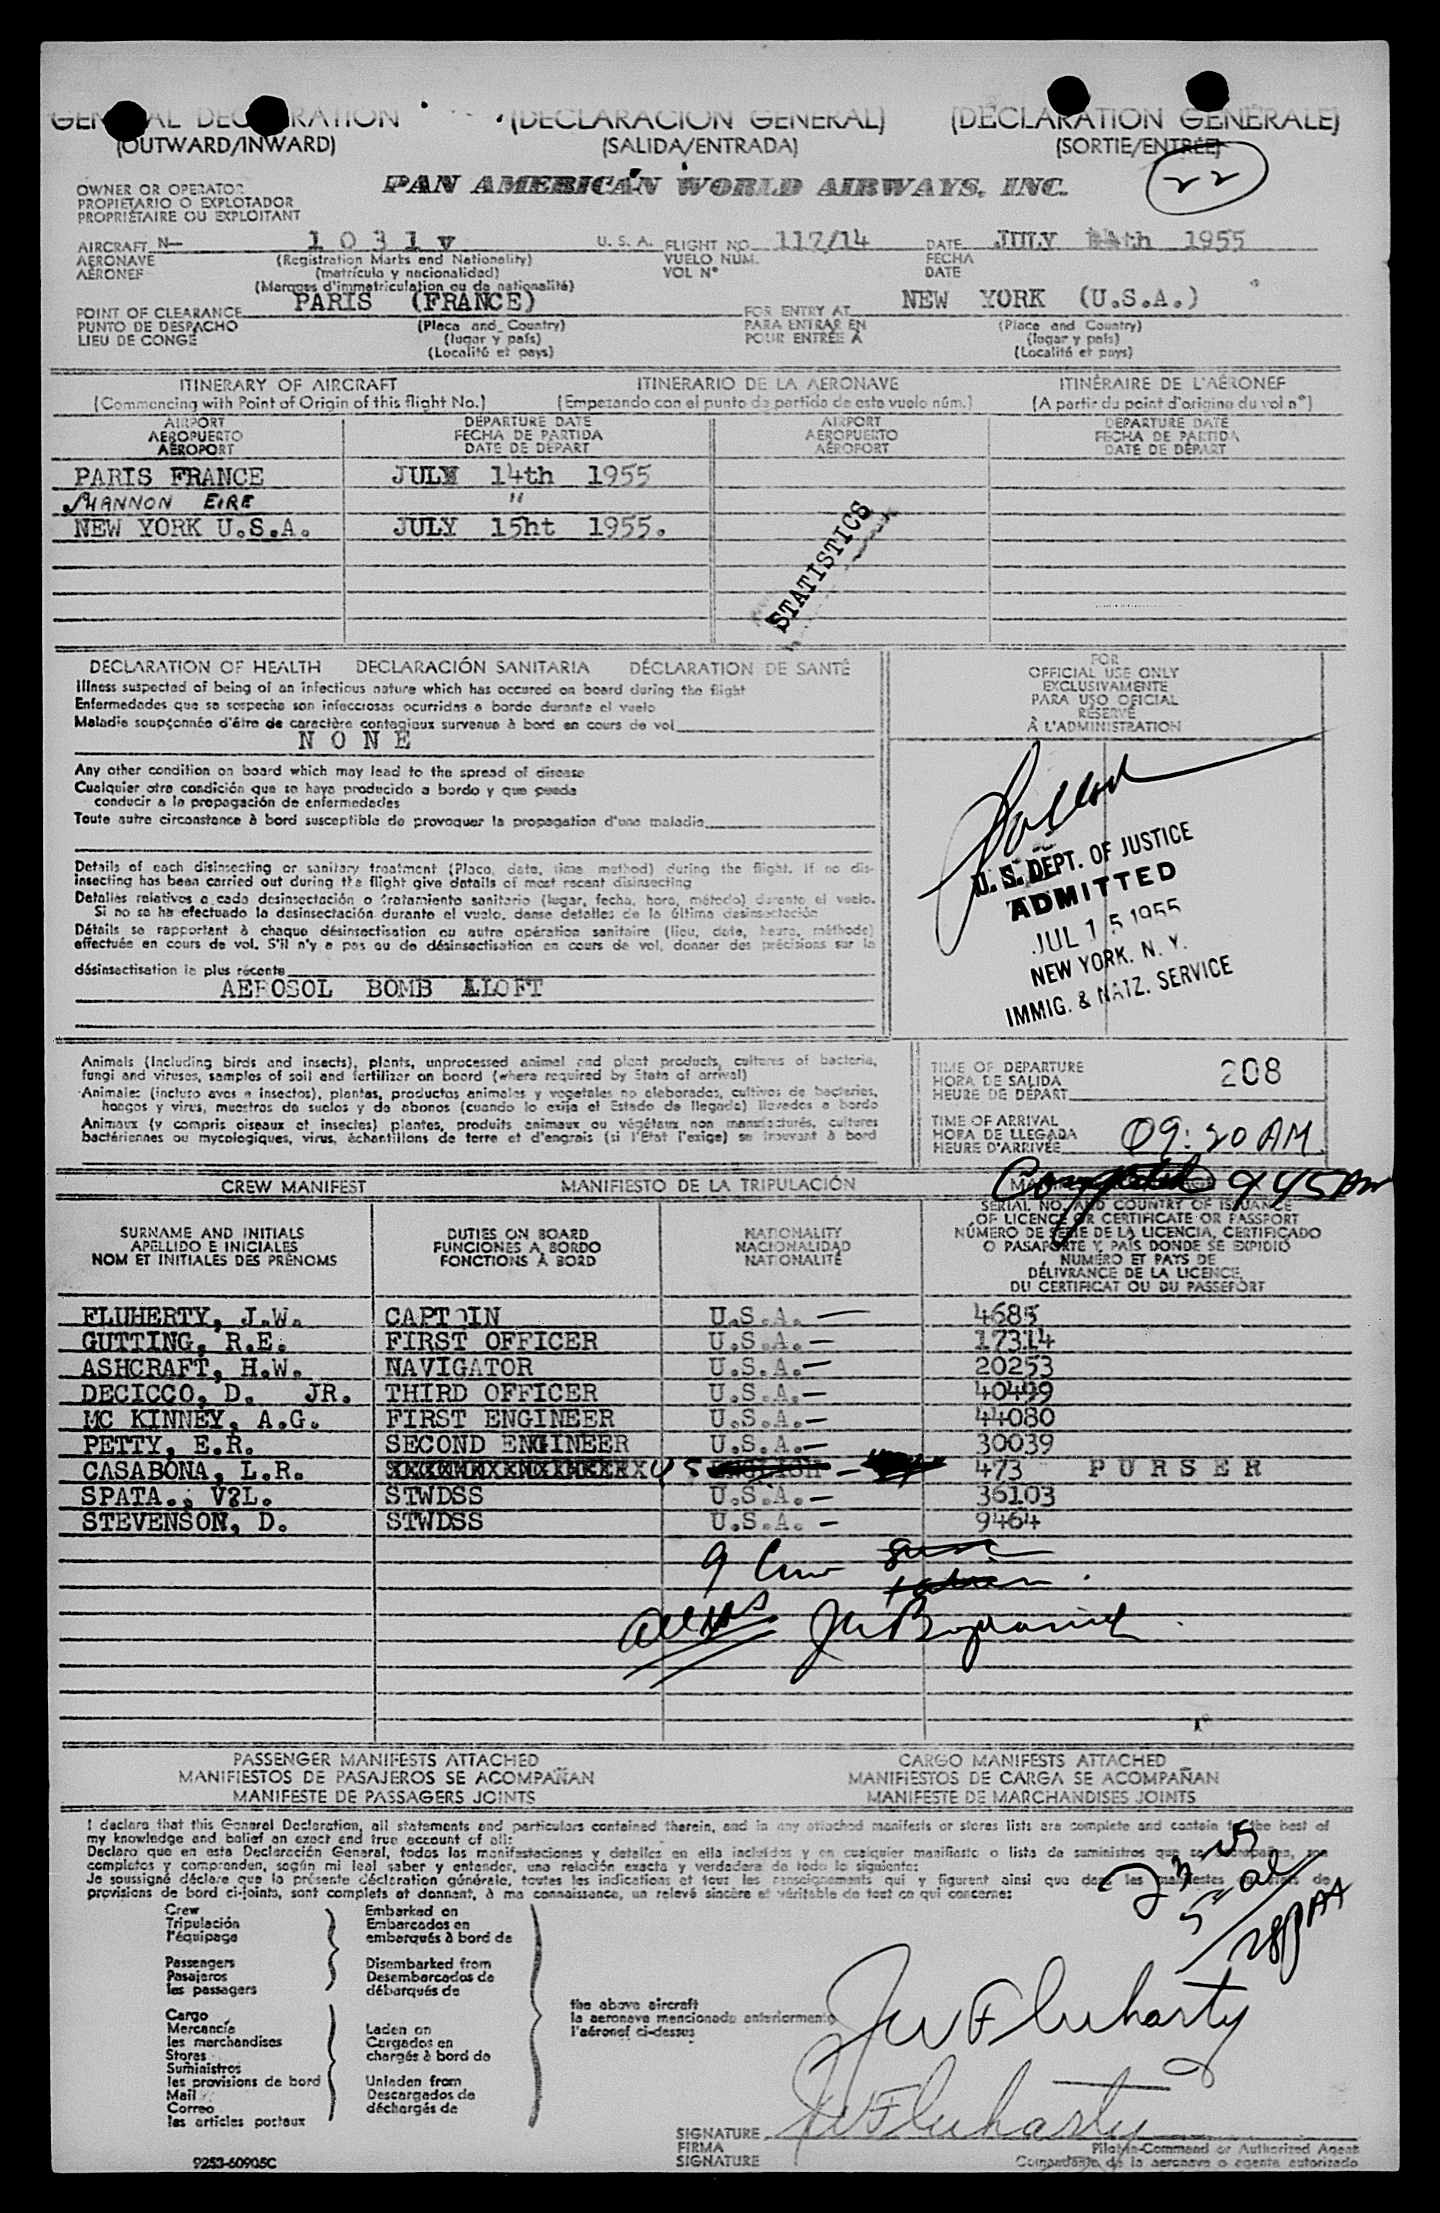 GENERAL DECLARATION (DECLARACION GENERAL) (DÉCLARATION GÉNÉRALE)
(OUTWARD/INWARD) (SALIDA/ENTRADA) (SORTIE/ENTRÉE)
22
OWNER OR OPERATOR PAN AMERICAN WORLD AIRWAYS, INC.
PROPIETARIO O EXPLOTADOR
PROPRIÉTAIRE OU EXPLOITANT
AIRCRAFT N— 1 0 3 1 v U. S. A. FLIGHT NO. 117/14 DATE JULY 14th 1955
AERONAVE (Registration Marks and Nationality) VUELO NUM. FECHA
AÉRONEF (matrícula y nacionalidad) VOL N° DATE
(Marques d'immatriculation ou de nationalité)
POINT OF CLEARANCE PARIS (FRANCE) FOR ENTRY AT NEW YORK (U.S.A.)
PUNTO DE DESPACHO (Place and Country) PARA ENTRAR EN (Place and Country)
LIEU DE CONGÉ (lugar y país) POUR ENTRÉE À (lugar y país)
(Localité et pays) (Localité et pays)
ITINERARY OF AIRCRAFT ITINERARIO DE LA AERONAVE ITINÉRAIRE DE L'AÉRONEF
(Commencing with Point of Origin of this flight No.) (Empezando con el punto de partida de este vuelo núm.) (A partir du point d'origine du vol n°)
AIRPORT DEPARTURE DATE AIRPORT DEPARTURE DATE
AEROPUERTO FECHA DE PARTIDA AEROPUERTO FECHA DE PARTIDA
AÉROPORT DATE DE DÉPART AÉROPORT DATE DE DÉPART
PARIS FRANCE JULY 14th 1955
SHANNON EIRE "
NEW YORK U.S.A. JULY 15ht 1955.
STATISTICS
DECLARATION OF HEALTH DECLARACIÓN SANITARIA DÉCLARATION DE SANTÉ
Illness suspected of being of an infectious nature which has occured on board during the flight
Enfermedades que se sospeche son infecciosas ocurridas a bordo durante el vuelo
Maladie soupçonnée d'être de caractère contagieux survenue à bord en cours de vol
N O N E
Any other condition on board which may lead to the spread of disease
Cualquier otra condición que se haya producido a bordo y que pueda
conducir a la propagación de enfermedades
Toute autre circonstance à bord susceptible de provoquer la propagation d'une maladie
Details of each disinsecting or sanitary treatment (Place, date, time method) during the flight. If no dis-
insecting has been carried out during the flight give details of most recent disinsecting
Detalles relativos a cada desinsectación o tratamiento sanitario (lugar, fecha, hora, método) durante el vuelo.
Si no se ha efectuado la desinsectación durante el vuelo, dense detalles de la última desinsectación
Détails se rapportant à chaque désinsectisation ou autre opération sanitaire (lieu, date, heure, méthode)
effectuée en cours de vol. S'il n'y a pas eu de désinsectisation en cours de vol, donner des précisions sur la
désinsectisation la plus récente
AEROSOL BOMB ALOFT
FOR
OFFICIAL USE ONLY
EXCLUSIVAMENTE
PARA USO OFICIAL
RÉSERVÉ
À L'ADMINISTRATION
U. S. DEPT. OF JUSTICE
ADMITTED
JUL 15 1955
NEW YORK, N. Y.
IMMIG. & NATZ. SERVICE
Animals (Including birds and insects), plants, unprocessed animal and plant products, cultures of bacteria,
fungi and viruses, samples of soil and fertilizer on board (where required by State of arrival)
Animales (incluso aves e insectos), plantas, productos animales y vegetales no elaborados, cultivos de bacterias,
hongos y virus, muestras de suelos y de abonos (cuando lo exija el Estado de llegada) llevados a bordo
Animaux (y compris oiseaux et insectes) plantes, produits animaux ou végétaux non manufacturés, cultures
bactériennes ou mycologiques, virus, échantillons de terre et d'engrais (si l'État l'exige) se trouvant à bord
TIME OF DEPARTURE 208
HORA DE SALIDA
HEURE DE DÉPART
TIME OF ARRIVAL
HORA DE LLEGADA 09:20 AM
HEURE D'ARRIVÉE
Completed 945 AM
CREW MANIFEST MANIFIESTO DE LA TRIPULACIÓN
SURNAME AND INITIALS DUTIES ON BOARD NATIONALITY
APELLIDO E INICIALES FUNCIONES A BORDO NACIONALIDAD
NOM ET INITIALES DES PRÉNOMS FONCTIONS À BORD NATIONALITÉ
SERIAL NO. AND COUNTRY OF ISSUANCE
OF LICENCE OR CERTIFICATE OR PASSPORT
NÚMERO DE SERIE DE LA LICENCIA, CERTIFICADO
O PASAPORTE Y PAÍS DONDE SE EXPIDIÓ
NUMÉRO ET PAYS DE
DÉLIVRANCE DE LA LICENCE,
DU CERTIFICAT OU DU PASSEPORT
FLUHERTY, J.W. CAPTAIN U.S.A. — 4685
GUTTING, R.E. FIRST OFFICER U.S.A. — 17314
ASHCRAFT, H.W. NAVIGATOR U.S.A. — 20253
DECICCO, D. JR. THIRD OFFICER U.S.A. — 40499
MC KINNEY, A.G. FIRST ENGINEER U.S.A. — 44080
PETTY, E.R. SECOND ENGINEER U.S.A. — 30039
CASABONA, L.R. US ENGLISH — 473 P U R S E R
SPATA., V?L. STWDSS U.S.A. — 36103
STEVENSON, D. STWDSS U.S.A. — 9464
9 Crew
PASSENGER MANIFESTS ATTACHED CARGO MANIFESTS ATTACHED
MANIFIESTOS DE PASAJEROS SE ACOMPAÑAN MANIFIESTOS DE CARGA SE ACOMPAÑAN
MANIFESTE DE PASSAGERS JOINTS MANIFESTE DE MARCHANDISES JOINTS
I declare that this General Declaration, all statements and particulars contained therein, and in any attached manifests or stores lists are complete and contain to the best of
my knowledge and belief an exact and true account of all:
Declaro que en esta Declaración General, todas las manifestaciones y detalles en ella incluidos y en cualquier manifiesto o lista de suministros que se acompañan, son
completos y comprenden, según mi leal saber y entender, una relación exacta y verdadera de todo lo siguiente:
Je soussigné déclare que la présente déclaration générale, toutes les indications et tous les renseignements qui y figurent ainsi que dans les manifestes ou listes de
provisions de bord ci-joints, sont complets et donnent, à ma connaissance, un relevé sincère et véritable de tout ce qui concerne:
Crew Embarked on
Tripulación Embarcados en
l'équipage embarqués à bord de
Passengers Disembarked from
Pasajeros Desembarcados de
les passagers débarqués de
the above aircraft
la aeronave mencionada anteriormente
l'aéronef ci-dessus
Cargo
Mercancía Laden on
les merchandises Cargados en
Stores chargés à bord de
Suministros
les provisions de bord Unladen from
Mail Descargados de
Correo déchargés de
les articles postaux
JW Fluharty
SIGNATURE JW Fluharty
FIRMA Pilot-in-Command or Authorized Agent
SIGNATURE Comandante de la aeronave o agente autorizado
9253-60905C